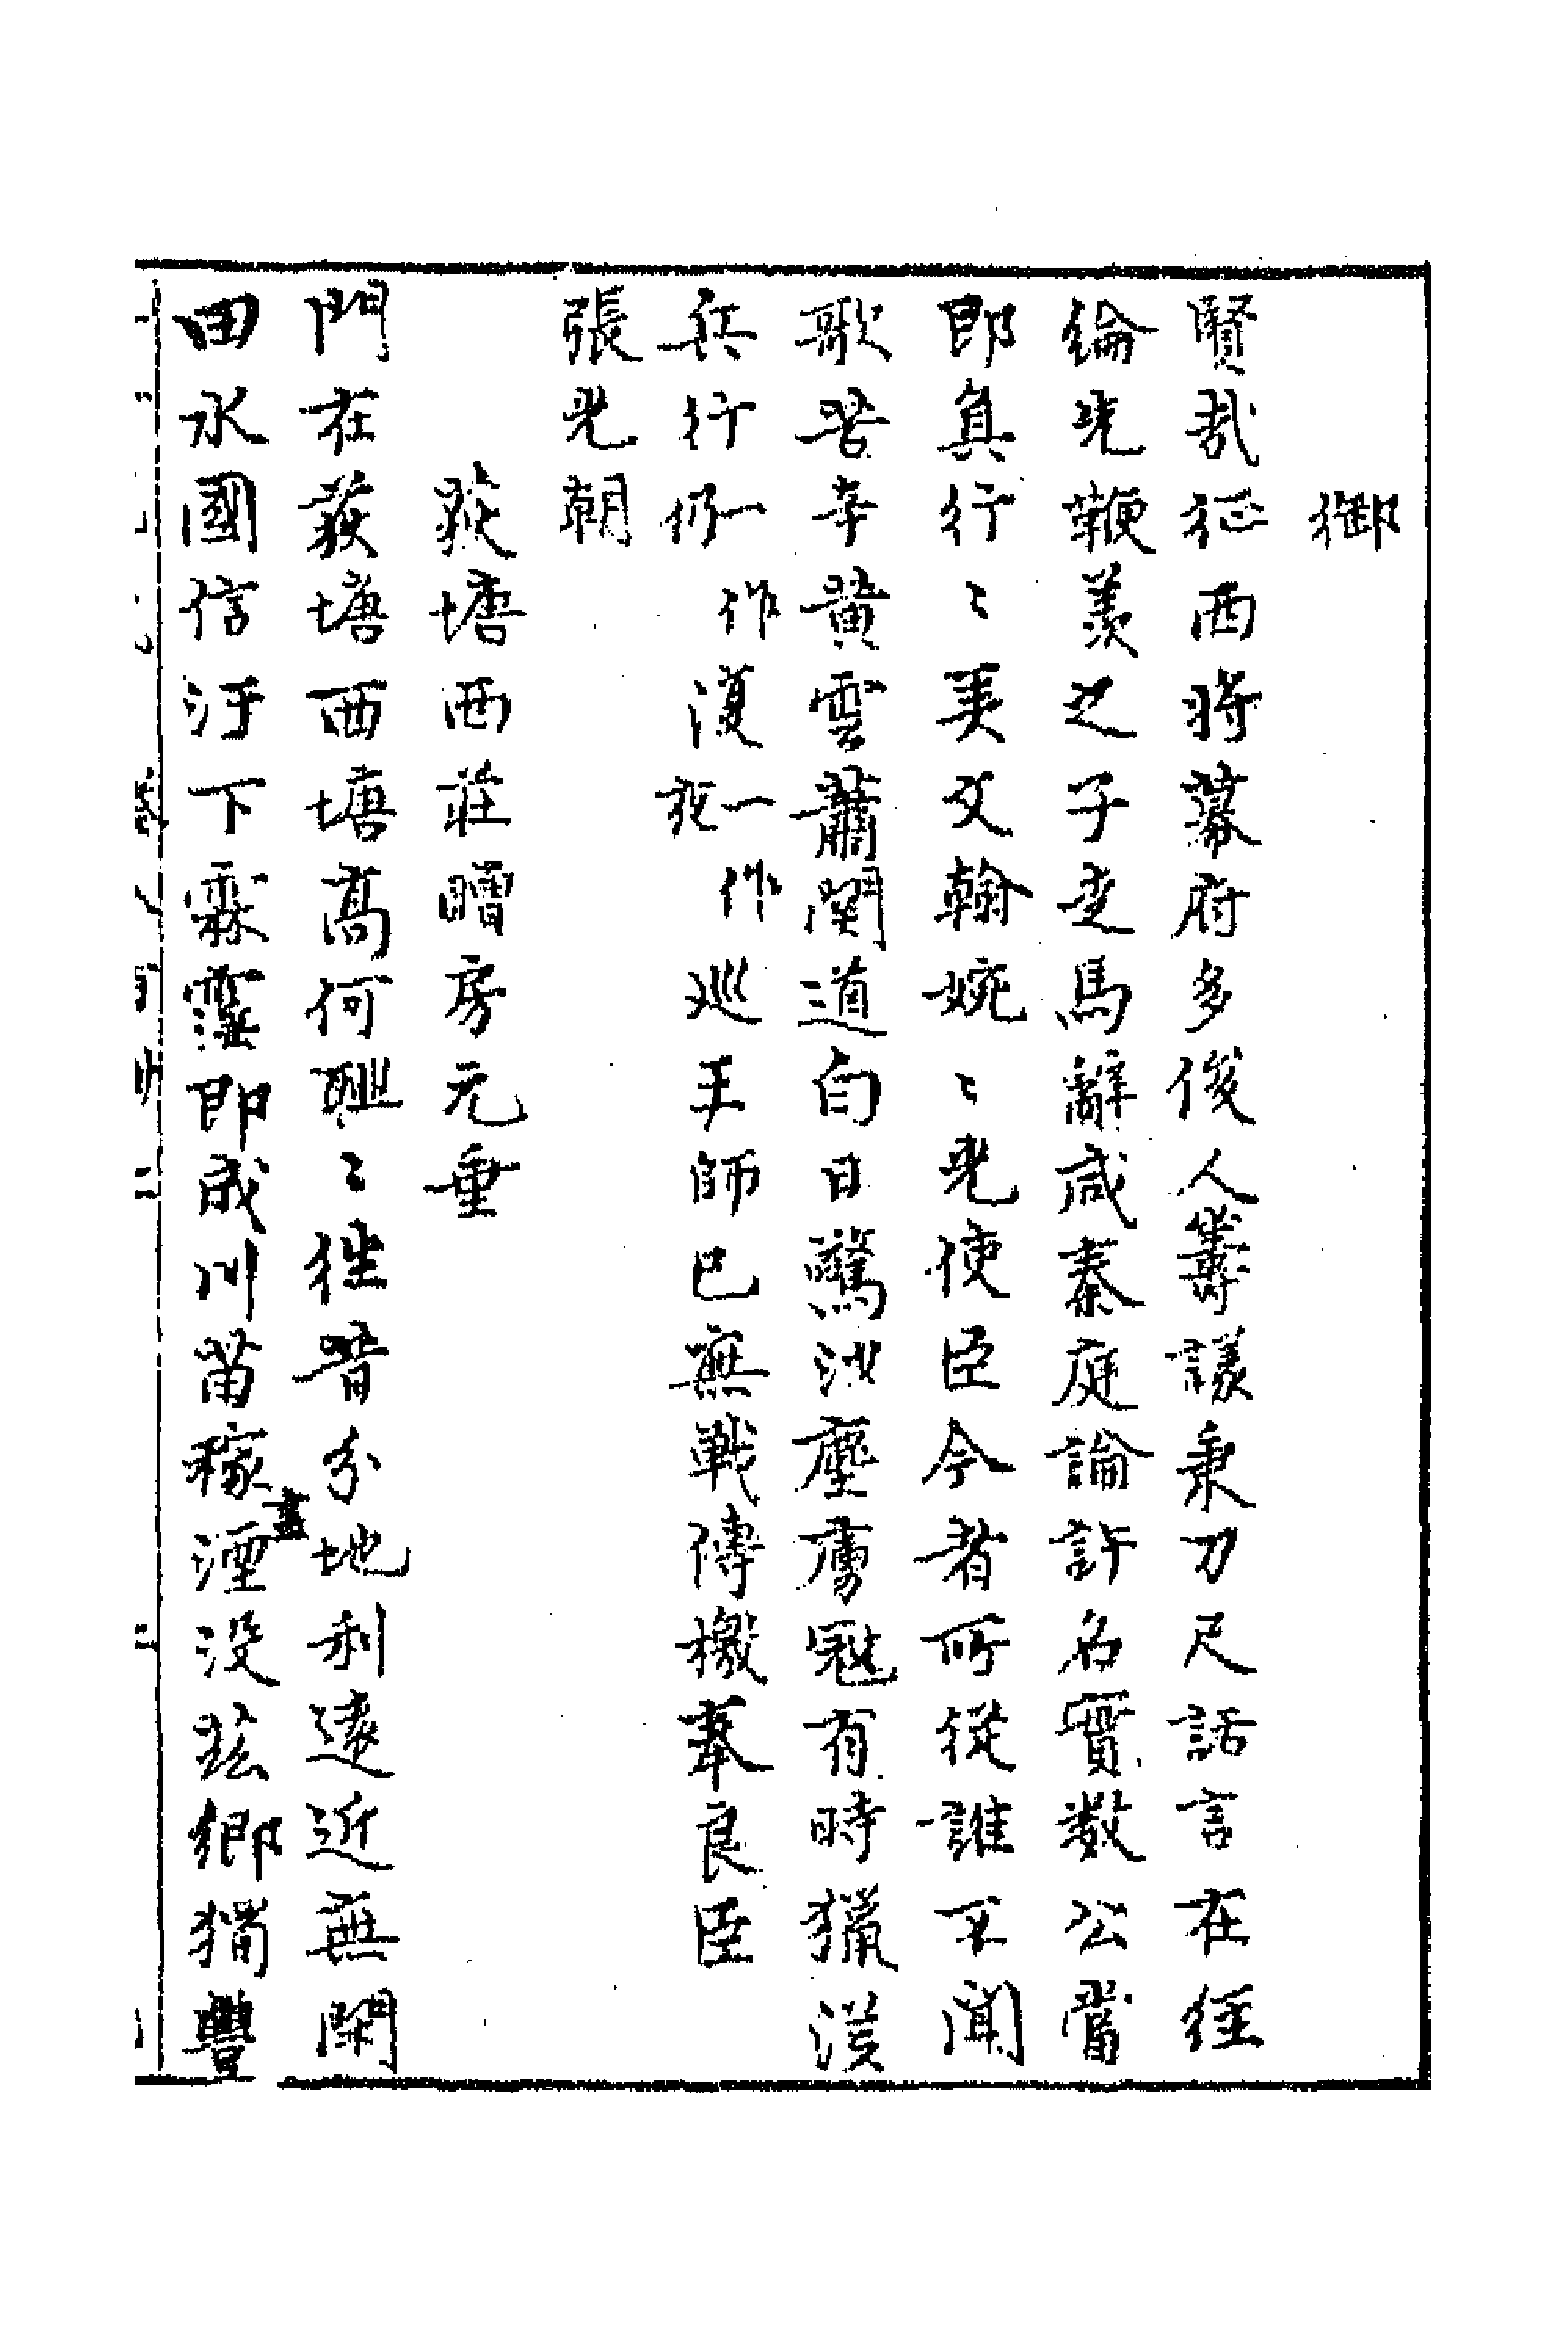 御
賢哉征西將幕府多俊人籌議秉刀尺話言在經
倫先鞭羨之子走馬辭咸秦庭論許名實数公當
即真行〻美文翰婉〻光使臣今者所從誰不聞
歌苦辛黄雲蕭関道白日驚沙塵虜冦有時獵漢
兵行仍一作復夜一作巡王師已無戰傳檄奉良臣
張光朝
荻塘西莊贈房元垂
門在荻塘西塘髙何聮〻往昔分地利遠近無閑
田水國信汙下霖霪即成川苗稼湮没盡兹鄉獨豐